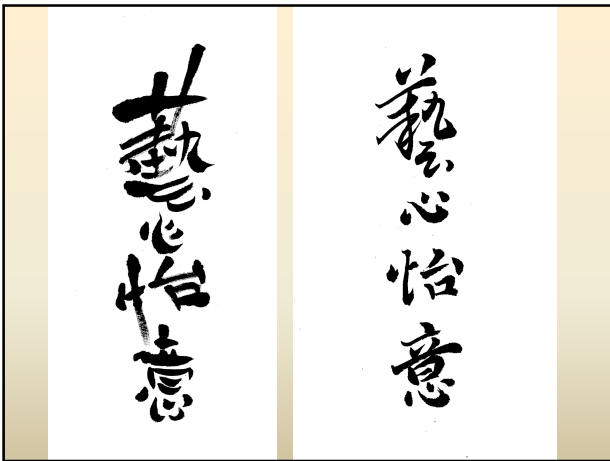 藝心怡意
藝心怡意